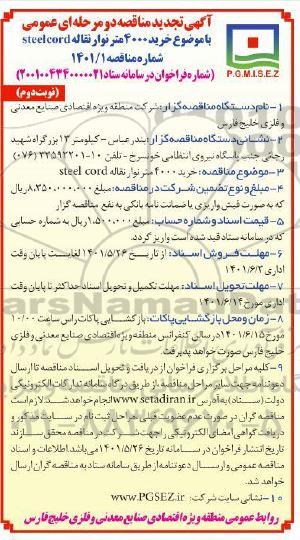 آگهی تجدید مناقصه دو مرحله ای عمومی
با موضوع خرید ۴۰۰۰ متر نوار نقاله steelcord
شماره مناقصه ۱۴۰۱/۱
(شماره فراخوان در سامانه ستاد ۲۰۰۱۰۰۴۳۴۰۰۰۰۰۲۱)
P.G.M.I.S.E.Z
(نوبت دوم)
۱- نام دستگاه مناقصه گزار: شرکت منطقه ویژه اقتصادی صنایع معدنی
و فلزی خلیج فارس
۲- نشانی دستگاه مناقصه گزار: بندرعباس - کیلومتر ۱۳ بزرگراه شهید
رجایی جنب پاسگاه نیروی انتظامی خونسرخ - تلفن ۱۰-۳۳۵۹۲۲۰۱ (۰۷۶)
۳- موضوع مناقصه: خرید ۴۰۰۰ متر نوار نقاله steel cord
۴- مبلغ و نوع تضمین شرکت در مناقصه: مبلغ ۸,۳۵۰,۰۰۰,۰۰۰ ریال
که به صورت فیش واریزی یا ضمانت نامه بانکی به نفع مناقصه گزار
۵- قیمت اسناد و شماره حساب: مبلغ ۱,۵۰۰,۰۰۰ ریال به شماره حسابی
که در سامانه ستاد قید شده است واریز گردد.
۶- مهلت فروش اسناد: از تاریخ ۱۴۰۱/۵/۲۶ لغایت پایان وقت
اداری ۱۴۰۱/۶/۳
۷- مهلت تحویل اسناد: مهلت تکمیل و تحویل اسناد حداکثر تا پایان وقت
اداری مورخ ۱۴۰۱/۶/۱۴
۸- زمان و محل بازگشایی پاکات: بازگشایی پاکات راس ساعت ۱۰/۰۰
مورخ ۱۴۰۱/۶/۱۵ در سالن کنفرانس منطقه ویژه اقتصادی صنایع معدنی و فلزی
خلیج فارس صورت خواهد پذیرفت.
۹- کلیه مراحل برگزاری فراخوان از دریافت و تحویل اسناد مناقصه تا ارسال
دعوتنامه جهت سایر مراحل مناقصه از طریق درگاه سامانه تدارکات الکترونیکی
دولت (ستاد) به آدرس www.setadiran.ir انجام خواهد شد. لازم است
مناقصه گران در صورت عدم عضویت قبلی، مراحل ثبت نام در سایت مذکور و
دریافت گواهی امضای الکترونیکی را جهت شرکت در مناقصه محقق سازند
تاریخ انتشار فراخوان در سامانه تاریخ ۱۴۰۱/۵/۲۶ می باشد اطلاعات و اسناد
مناقصه عمومی و ارسال دعوتنامه از طریق سامانه ستاد به مناقصه گران ارسال
خواهد شد.
۱۰- نشانی سایت شرکت: www.PGSEZ.ir
روابط عمومی منطقه ویژه اقتصادی صنایع معدنی و فلزی خلیج فارس